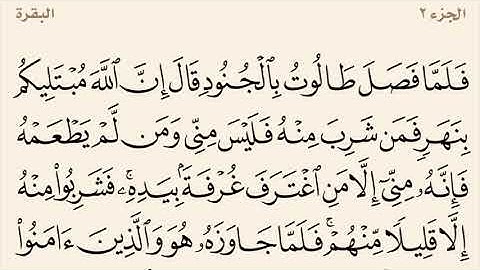 الجزء ٢ البقرة
فَلَمَّا فَصَلَ طَالُوتُ بِٱلْجُنُودِ قَالَ إِنَّ ٱللَّهَ مُبْتَلِيكُم
بِنَهَرٍ فَمَن شَرِبَ مِنْهُ فَلَيْسَ مِنِّي وَمَن لَّمْ يَطْعَمْهُ
فَإِنَّهُۥ مِنِّيٓ إِلَّا مَنِ ٱغْتَرَفَ غُرْفَةَۢ بِيَدِهِۦۚ فَشَرِبُوا۟ مِنْهُ
إِلَّا قَلِيلًا مِّنْهُمْۚ فَلَمَّا جَاوَزَهُۥ هُوَ وَٱلَّذِينَ ءَامَنُوا۟